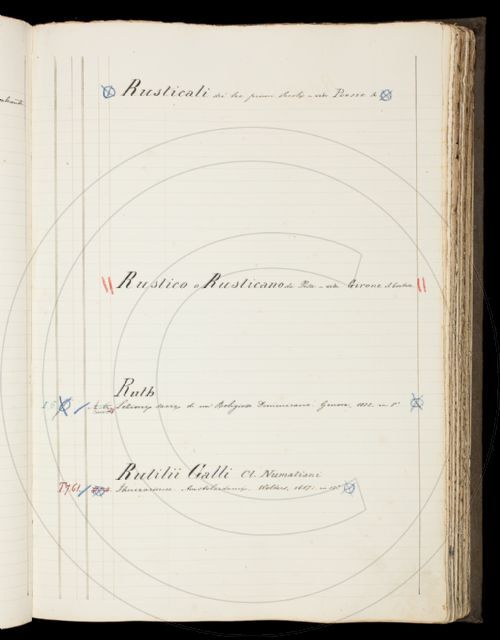 Rusticali dei tre primi Secoli - vedi Poesie
Rustico o Rusticano da Pisa - vedi Girone
Ruth
di un Religioso Domenicano. Genova, 1822. in 8°
Rutilii Galli Cl. Numatiani
T761 Itinerarium. Amstelodami, Wolters, 1687. in 12°